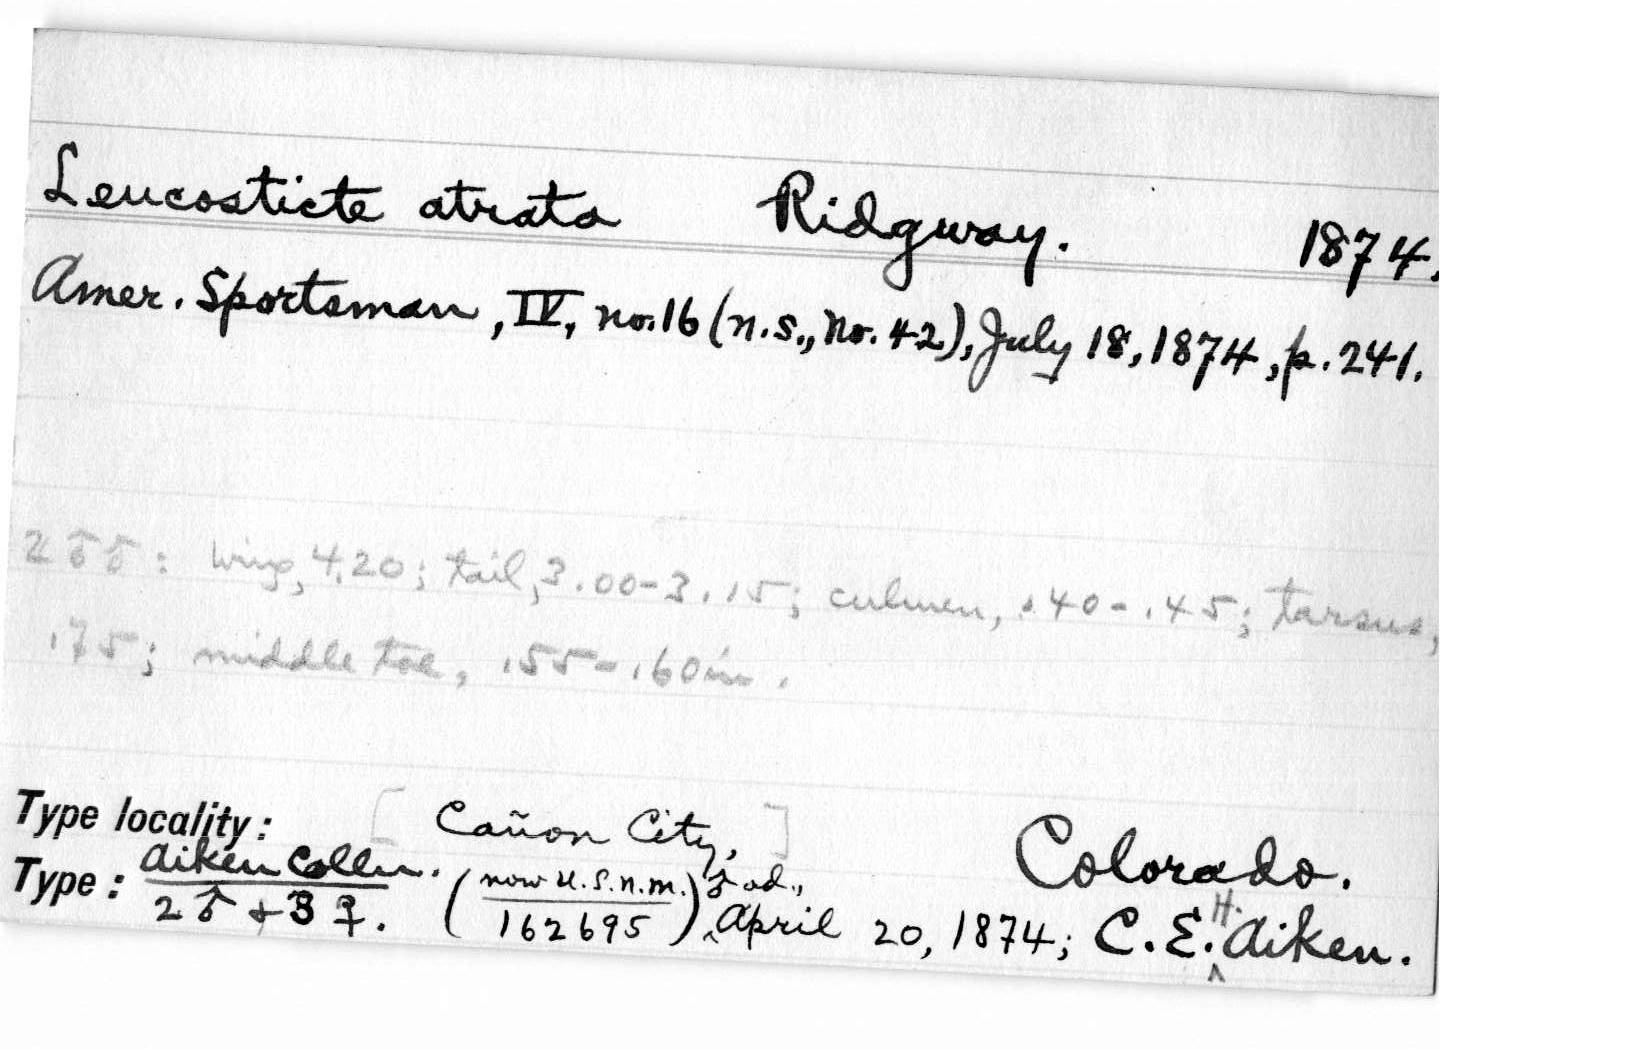 Leucosticte atrata Ridgway. 1874.
Amer. Sportsman, IV, no. 16 (n.s., no. 42), July 18, 1874, p. 241.
2 ♂♂: wing, 4.20; tail, 3.00-3.15; culmen, .40-.45; tarsus,
.75; middle toe, .55-.60 in.
Type locality: [Cañon City,] Colorado.
Type: Aiken Colln. / 2 ♂ + 3 ♀. (now U.S.N.M. / 162695), ♂ ad., April 20, 1874; C. E. H. Aiken.